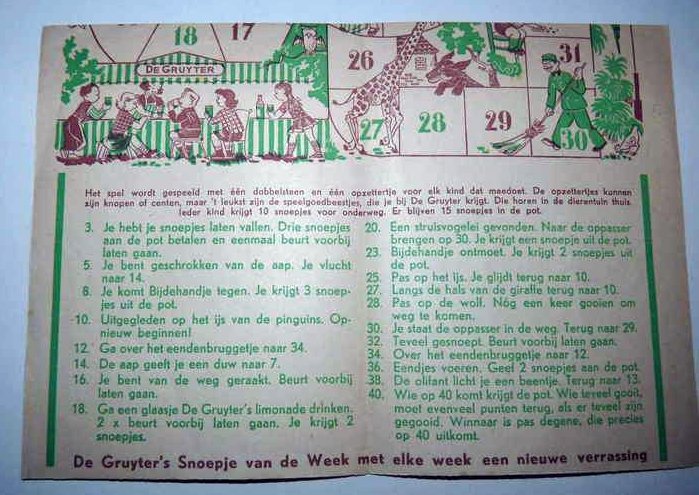 18
17
DE GRUYTER
26
31
27
28
29
30
Het spel wordt gespeeld met één dobbelsteen en één opzettertje voor elk kind dat meedoet. De opzettertjes kunnen
zijn knopen of centen, maar 't leukst zijn de speelgoedbeestjes, die je bij De Gruyter krijgt. Die horen in de dierentuin thuis.
Ieder kind krijgt 10 snoepjes voor onderweg. Er blijven 15 snoepjes in de pot.
3. Je hebt je snoepjes laten vallen. Drie snoepjes
aan de pot betalen en eenmaal beurt voorbij
laten gaan.
5. Je bent geschrokken van de aap. Je vlucht
naar 14.
8. Je komt Bijdehandje tegen. Je krijgt 3 snoep-
jes uit de pot.
10. Uitgegleden op het ijs van de pinguins. Op-
nieuw beginnen!
12. Ga over het eendenbruggetje naar 34.
14. De aap geeft je een duw naar 7.
16. Je bent van de weg geraakt. Beurt voorbij
laten gaan.
18. Ga een glaasje De Gruyter's limonade drinken.
2 x beurt voorbij laten gaan. Je krijgt 2
snoepjes.
20. Een struisvogelei gevonden. Naar de oppasser
brengen op 30. Je krijgt een snoepje uit de pot.
23. Bijdehandje ontmoet. Je krijgt 2 snoepjes uit
de pot.
25. Pas op het ijs. Je glijdt terug naar 10.
27. Langs de hals van de giraffe terug naar 10.
28. Pas op de wolf. Nóg een keer gooien om
weg te komen.
30. Je staat de oppasser in de weg. Terug naar 29.
32. Teveel gesnoept. Beurt voorbij laten gaan.
34. Over het eendenbruggetje naar 12.
36. Eendjes voeren. Geef 2 snoepjes aan de pot.
38. De olifant licht je een beentje. Terug naar 13.
40. Wie op 40 komt krijgt de pot. Wie teveel gooit,
moet evenveel punten terug, als er teveel zijn
gegooid. Winnaar is pas degene, die precies
op 40 uitkomt.
De Gruyter's Snoepje van de Week met elke week een nieuwe verrassing